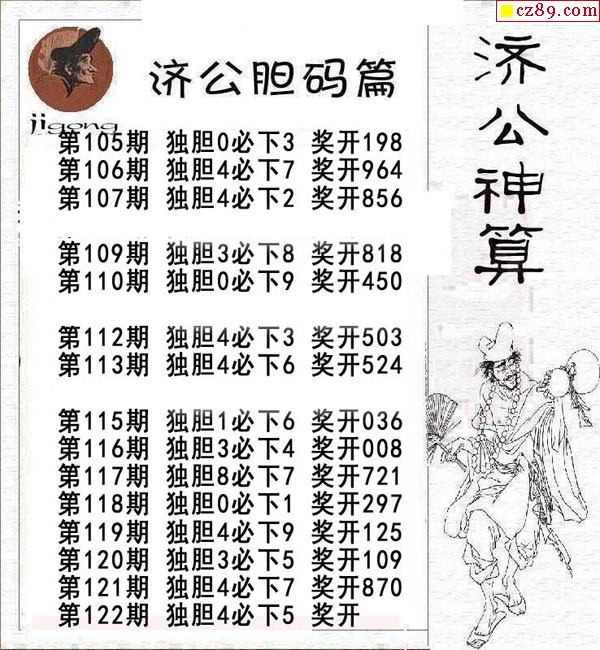 cz89.com
济公胆码篇
jigong
第105期 独胆0必下3 奖开198
第106期 独胆4必下7 奖开964
第107期 独胆4必下2 奖开856
第109期 独胆3必下8 奖开818
第110期 独胆0必下9 奖开450
第112期 独胆4必下3 奖开503
第113期 独胆4必下6 奖开524
第115期 独胆1必下6 奖开036
第116期 独胆3必下4 奖开008
第117期 独胆8必下7 奖开721
第118期 独胆0必下1 奖开297
第119期 独胆4必下9 奖开125
第120期 独胆3必下5 奖开109
第121期 独胆4必下7 奖开870
第122期 独胆4必下5 奖开
济公神算